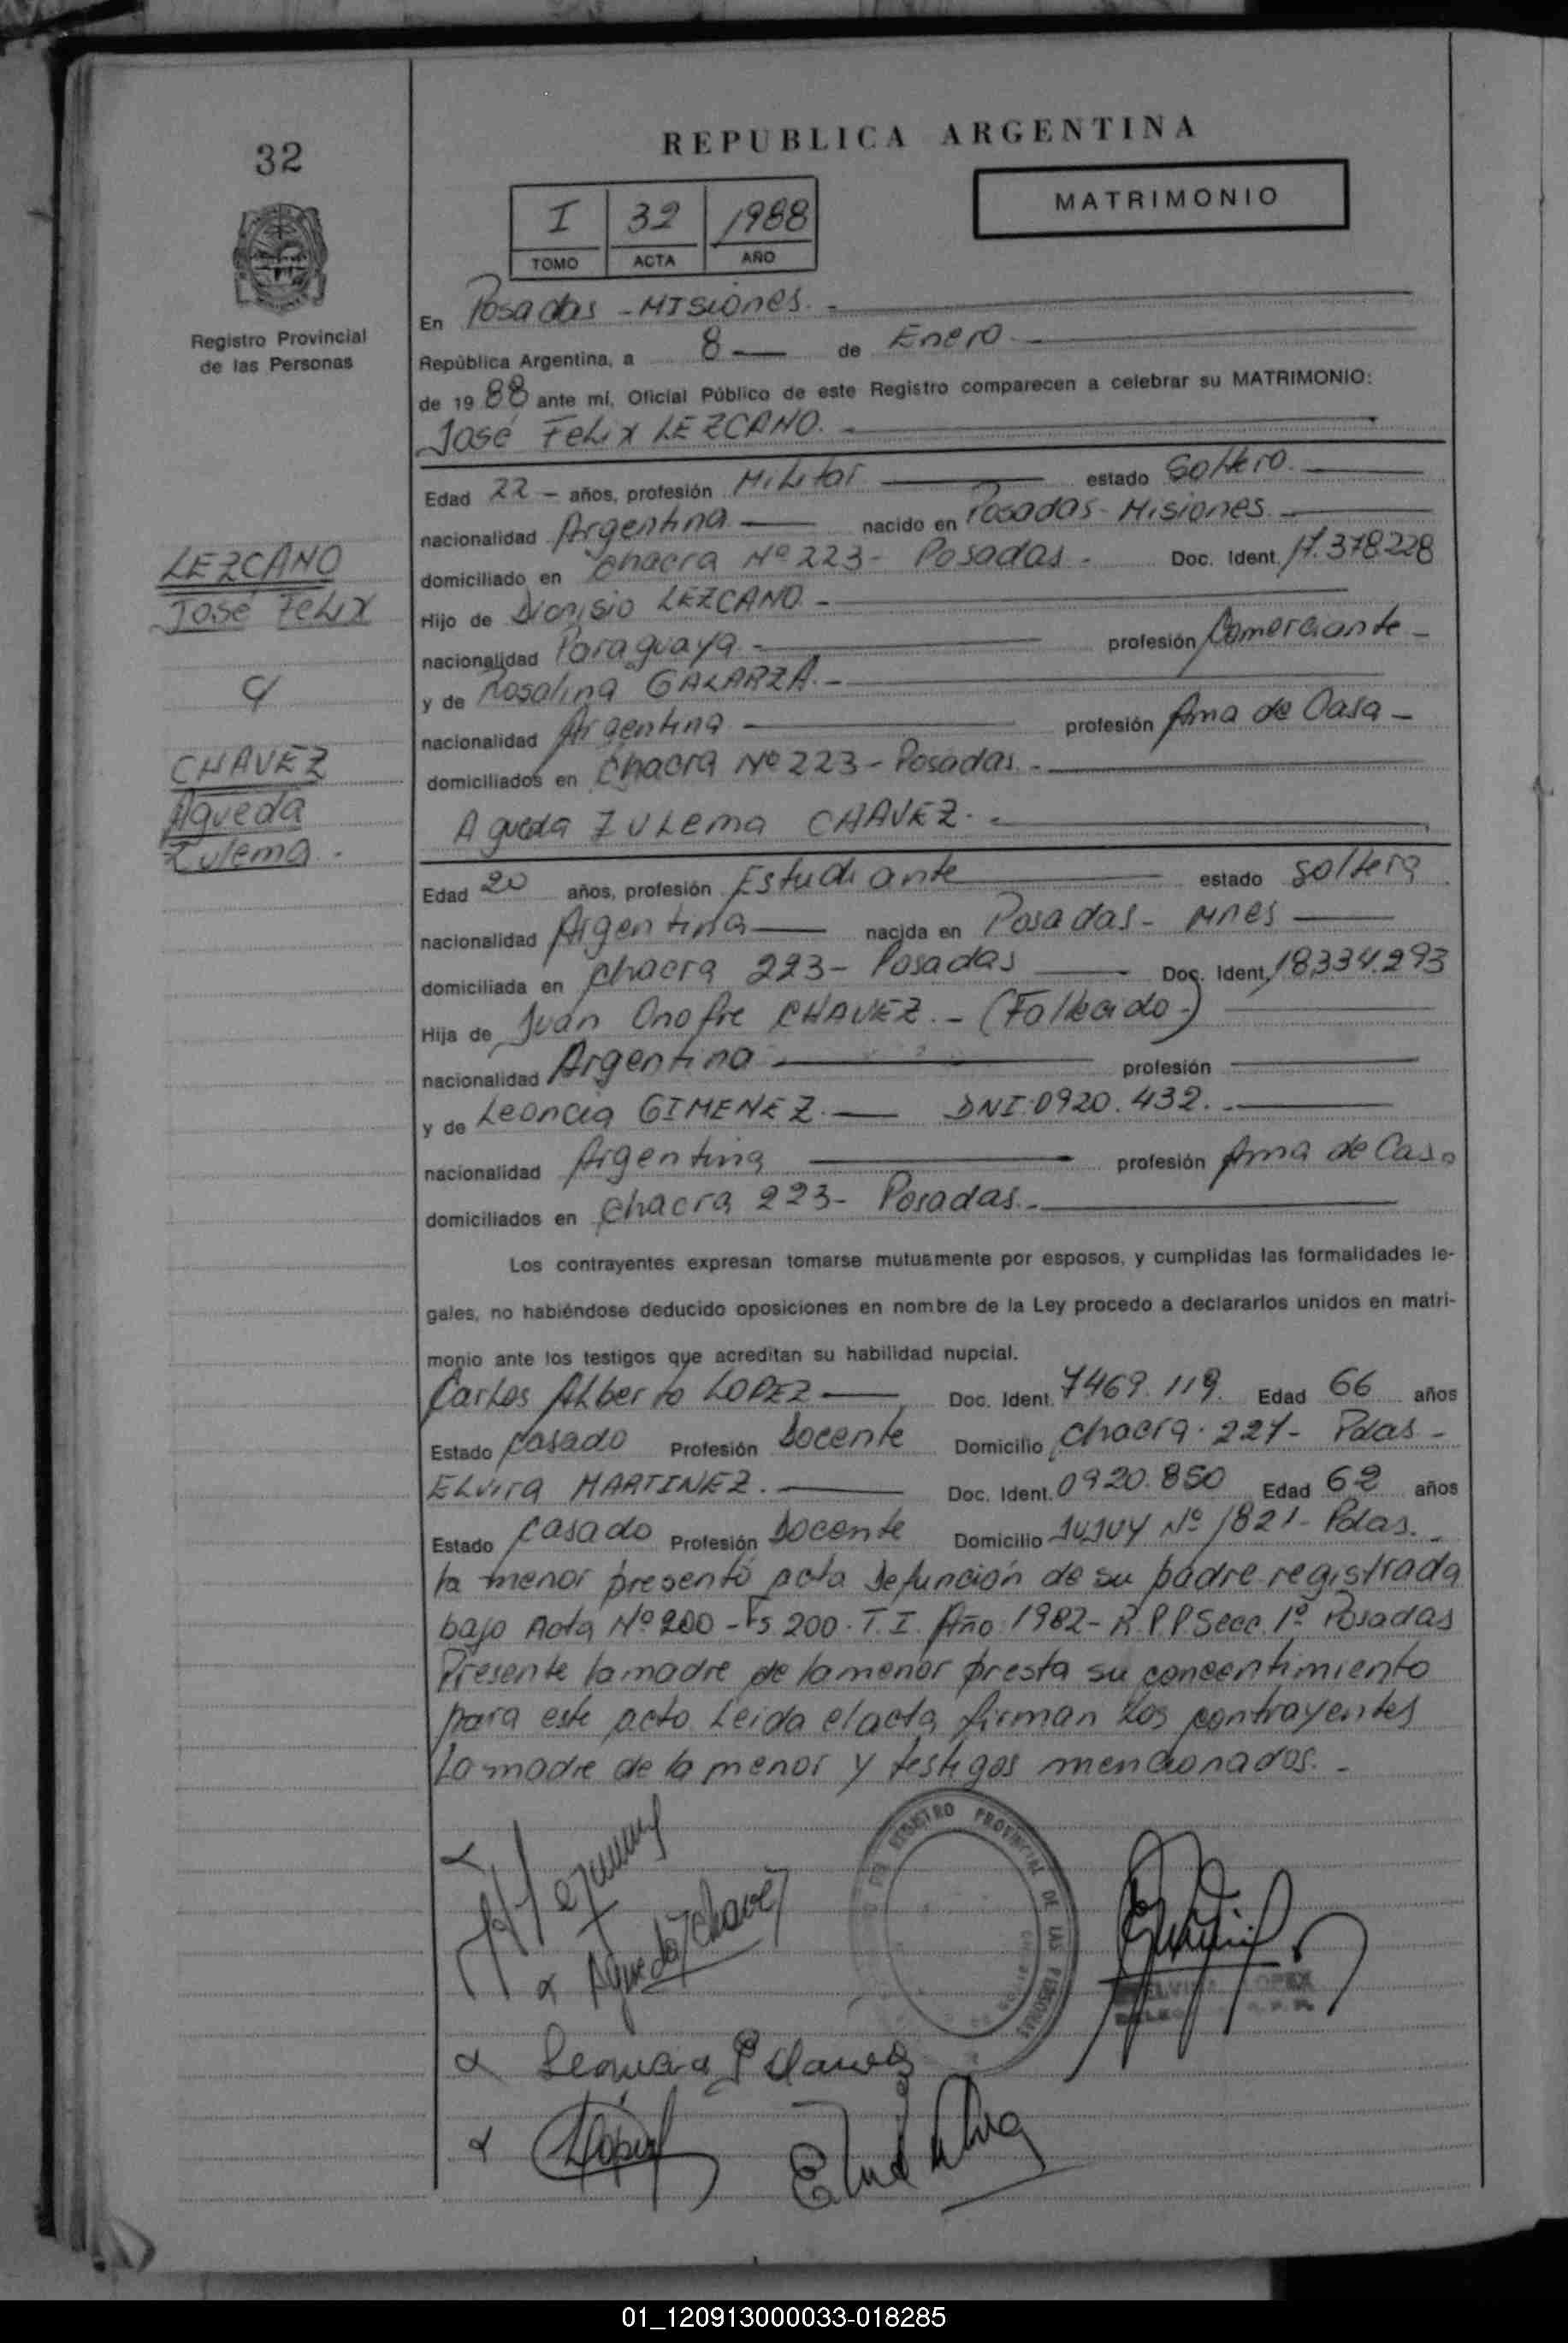 32
Registro Provincial
de las Personas
LEZCANO
José Felix
y
CHAVEZ
Agueda
Zulema.
REPUBLICA ARGENTINA
I 32 1988
TOMO ACTA AÑO
MATRIMONIO
En Posadas - Misiones.-
República Argentina, a 8 — de Enero
de 1988 ante mí, Oficial Público de este Registro comparecen a celebrar su MATRIMONIO:
José Felix LEZCANO.-
Edad 22 - años, profesión Militar estado Soltero.
nacionalidad Argentina nacido en Posadas - Misiones
domiciliado en Chacra Nº 223 - Posadas - Doc. Ident. 17.378.228
Hijo de Dionisio LEZCANO.-
nacionalidad Paraguaya.- profesión Comerciante -
y de Rosalina GALARZA.-
nacionalidad Argentina profesión Ama de Casa -
domiciliados en Chacra Nº 223 - Posadas.-
Agueda Zulema CHAVEZ.-
Edad 20 años, profesión Estudiante estado Soltera
nacionalidad Argentina nacida en Posadas - Mnes
domiciliada en Chacra 223 - Posadas Doc. Ident. 18.334.293
Hija de Juan Onofre CHAVEZ.- (Fallecido-)
nacionalidad Argentina profesión
y de Leoncia GIMENEZ.- DNI: 0920.432.-
nacionalidad Argentina profesión Ama de Casa
domiciliados en Chacra 223 - Posadas.-
Los contrayentes expresan tomarse mutuamente por esposos, y cumplidas las formalidades le-
gales, no habiéndose deducido oposiciones en nombre de la Ley procedo a declararlos unidos en matri-
monio ante los testigos que acreditan su habilidad nupcial.
Carlos Alberto LOPEZ Doc. Ident. 7469.119. Edad 66 años
Estado Casado Profesión Docente Domicilio Chacra. 221- Pdas -
Elvira MARTINEZ. Doc. Ident. 0920.850 Edad 62 años
Estado Casado Profesión Docente Domicilio JUJUY Nº 1821- Pdas.-
la menor presentó acta Defunción de su padre registrada
bajo Acta Nº 200 - Fs 200. T. I. Año 1982 - R.P.P Secc. 1º Posadas
Presente la madre de la menor presta su concentimiento
para este acto Leida el acta firman los contrayentes
La madre de la menor y testigos mencionados.-
Agueda Z Chavez
REGISTRO PROVINCIAL DE LAS PERSONAS
LOPEZ
01_120913000033-018285